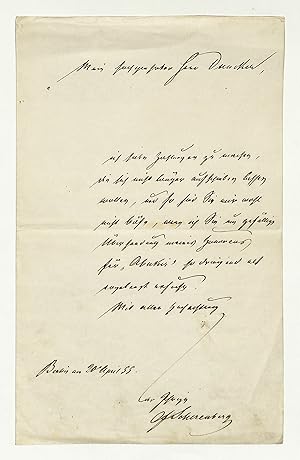 Mein hochgeehrter Herr Duncker,
ich habe Zahlungen zu machen,
die sich nicht länger aufschieben lassen
wollen, und so sind Sie mir wohl
nicht böse, wenn ich Sie um gefällige
Übersendung meines Honorars
für „Abukir“ so dringend als
ergebenst ersuche.
Mit aller Hochachtung
Berlin am 20 April 55.
der Ihrige
Scherenberg